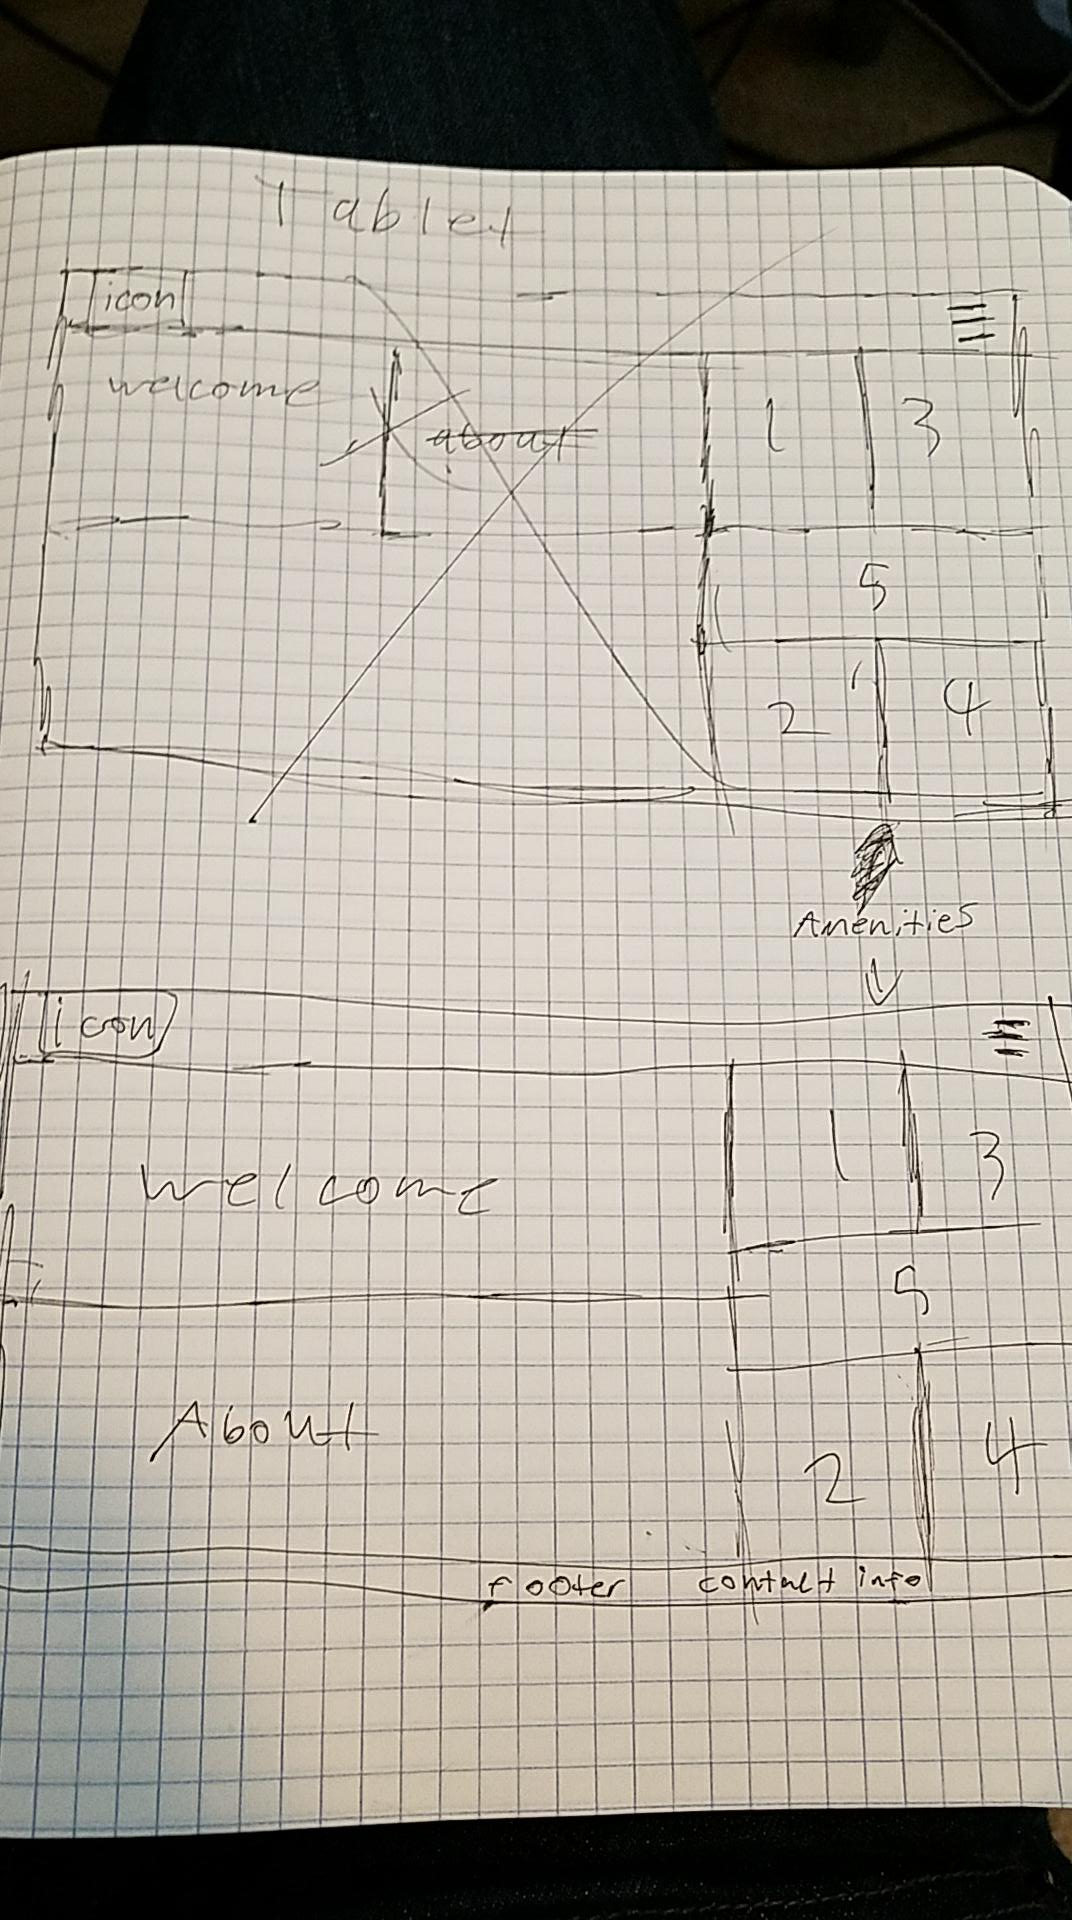 Tablet
icon
welcome
about
1 3
5
2 4
Amenities
icon
welcome
1 3
5
About
2 4
footer contact info